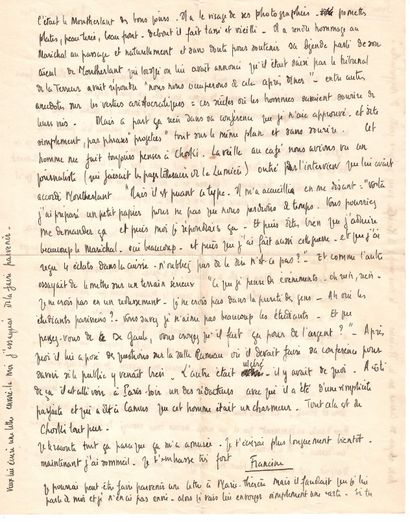 c'était le Montherlant des bons jours. Il a le visage de ses photographies pomettes
plates, beau front. debout il fait tassé et vieilli - Il a rendu hommage au
Maréchal au passage et naturellement et sans doute pour soutenir sa légende parlé de son
aïeul de Montherlant qui lorsqu'on lui avait annoncé qu'il était saisi par le tribunal
de la Terreur avait répondu "nous nous occuperons de cela après dîner" - entre autres
anecdotes sur les vertus aristocratiques = ces siècles où les hommes savaient sourire de
leurs
Mais à part ça rien dans sa conférence que je n'aie approuvé, et dite
simplement, pas phrases "projetées" tout sur le même plan et sans sourire. Cet
homme me fait toujours penser à Choski. La veille au café nous avions vu un
journaliste (qui faisait le papi littéraire de la Lumière) outré par l'interview que lui avait
accordé Montherlant "Mais il est puant ce type. Il m'a accueilli en me disant = "Voilà
j'ai préparé un petit papier pour ne pas que nous perdions de temps. Vous pourriez
me demander ça et puis moi je répondrais ça - Et puis dites bien que j'admire
beaucoup le Maréchal. oui beaucoup. et puis que j'ai fait aussi cette guerre. et que j'ai
reçu 2 éclats dans la cuisse - n'oubliez pas de le dire n'est ce pas ?" - Et comme l'autre
essayait de le mettre sur un terrain sérieux "ce que je pense des événements. oh rien, rien -
Je ne crois pas en un redressement - Je ne crois pas dans la pureté des gens - Ah oui les
étudiants parisiens ? Vous savez je n'aime pas beaucoup les étudiants - Et que
pensez-vous de De Gaulle, vous croyez qu'il fait ça pour de l'argent ?" - Après
quoi il lui a posé des questions sur la salle Rameau où il devait faire sa conférence pour
savoir si le public y venait bien - L'autre était - il y avait de quoi - A côté
de ça il est allé voir à Paris Soir un des rédacteurs avec qui il a été d'une simplicité
parfaite et qui a dit à Camus que cet homme était un charmeur. Tout cela est du
Choski tout pur.
Je te raconte tout ça parce que ça m'a amusée. Je t'écrirai plus longuement bientôt -
maintenant j'ai sommeil. Je t'embrasse très fort
Francine
Je pourrai peut être faire parvenir une lettre à Marie-Thérèse mais il faudrait que je lui
parle de moi et je n'en ai pas envie - alors je vais lui envoyer simplement une carte. Si tu
veux lui écrire une lettre envoie la moi j'essayerai de la faire parvenir.